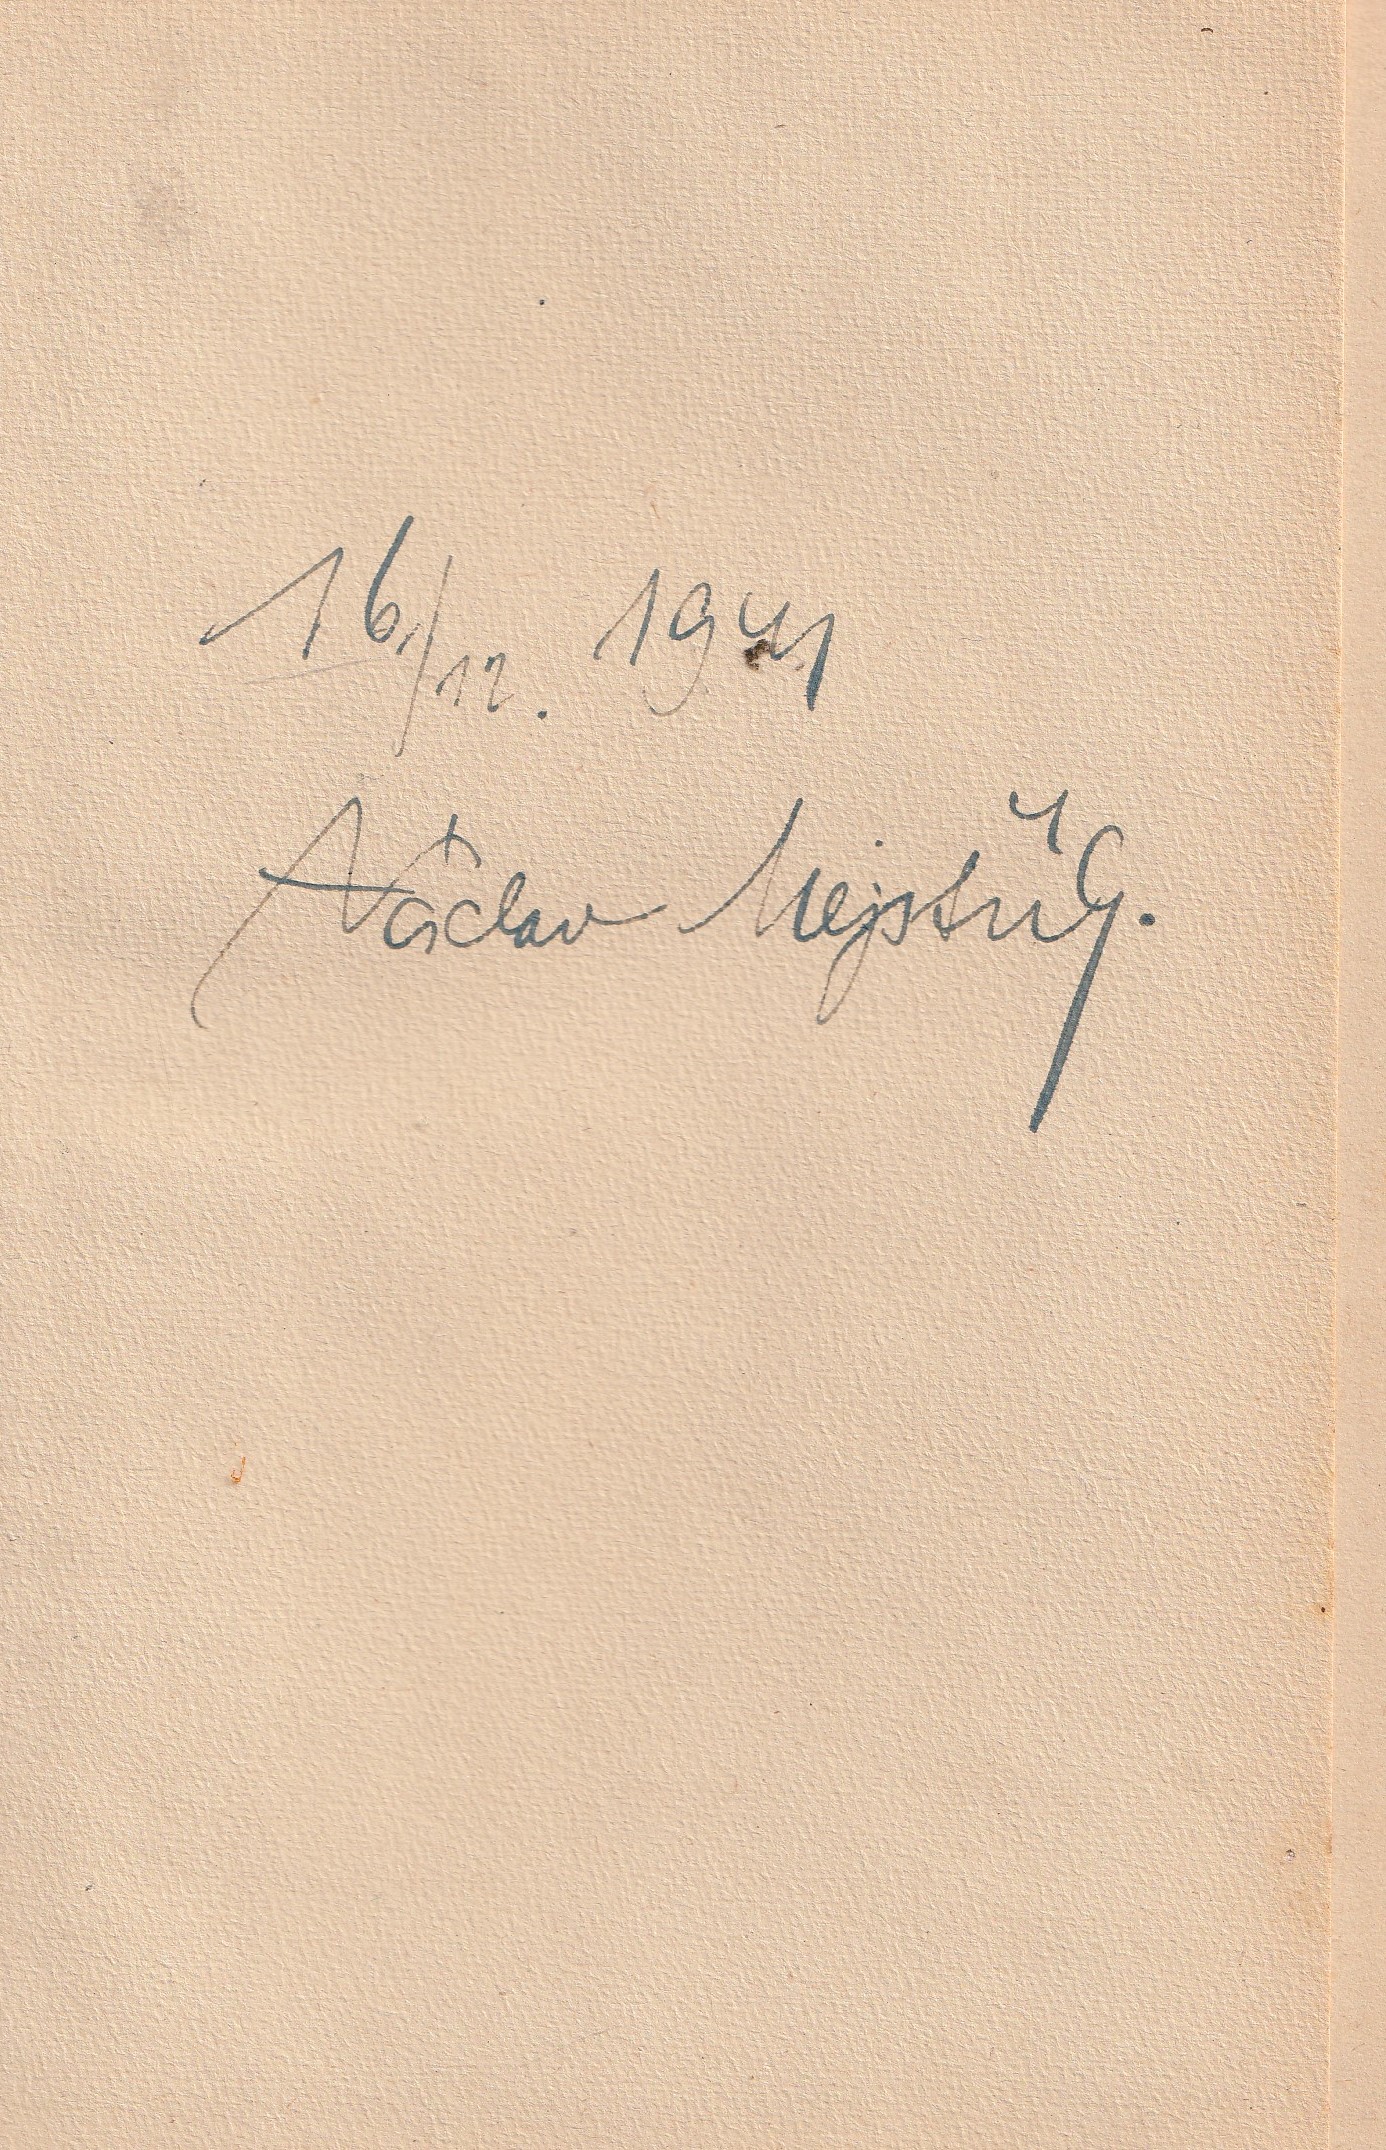 16/12. 1941
Václav Mejstřík.